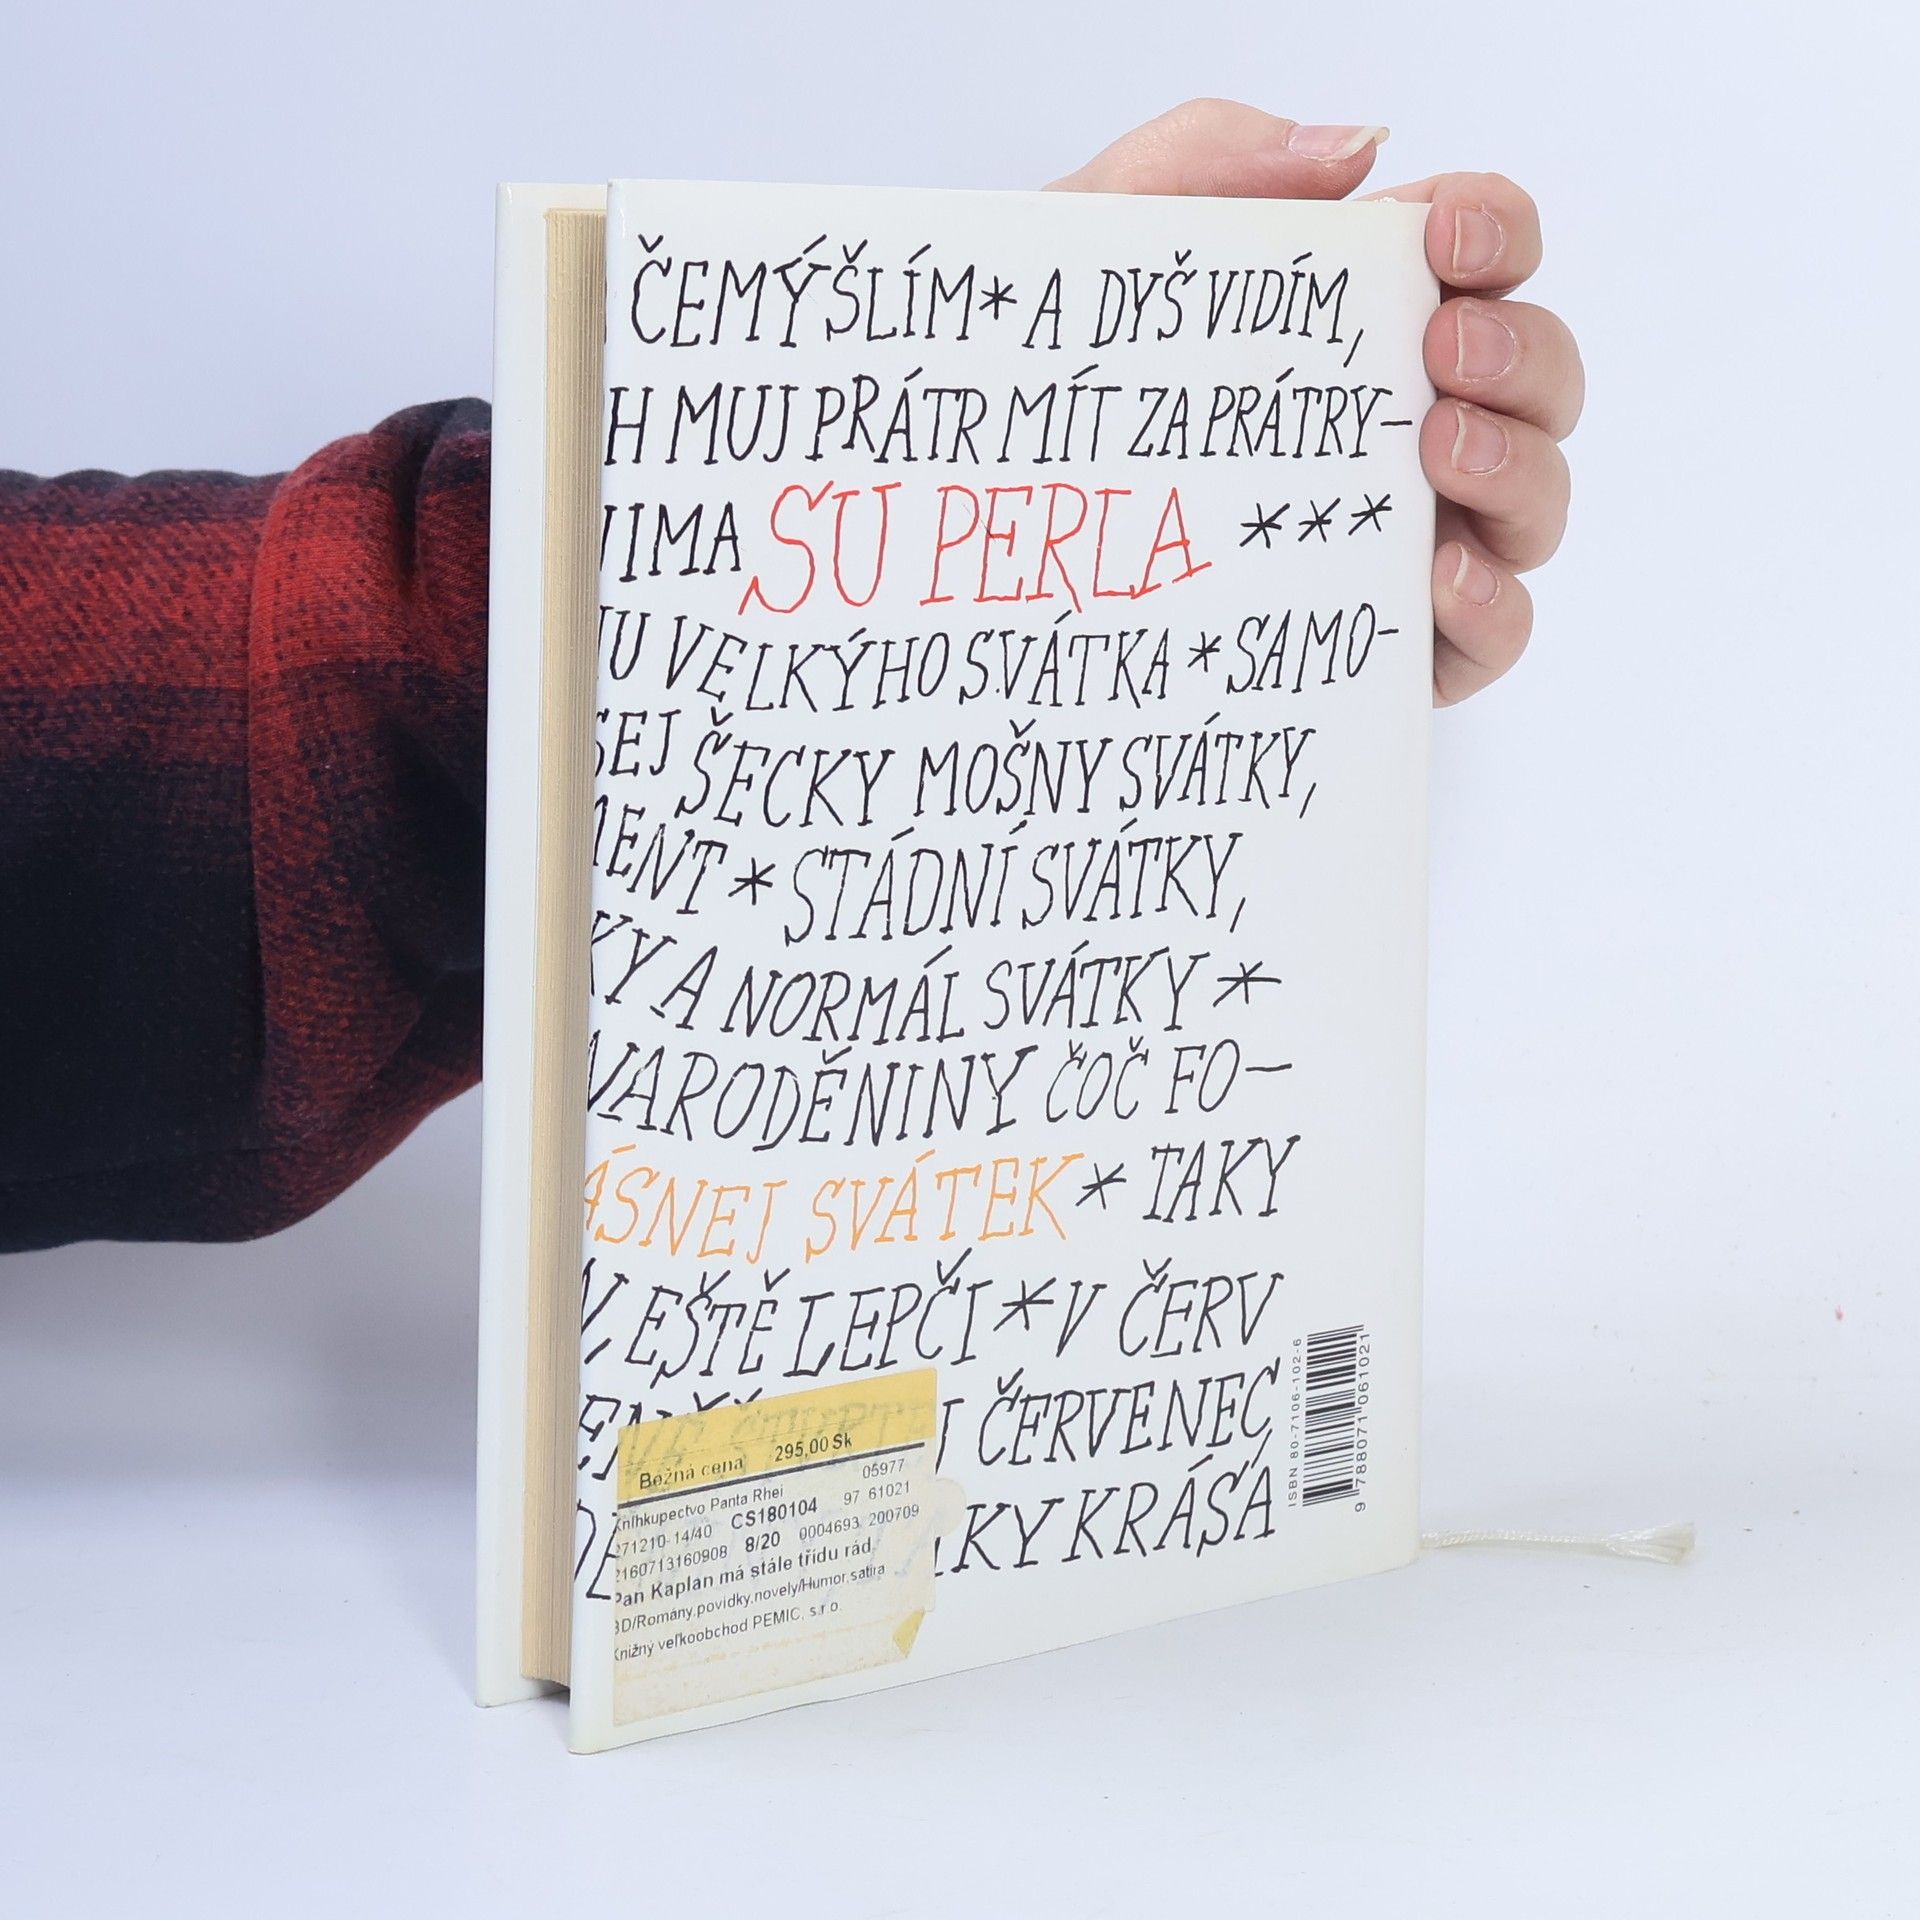 ČEMÝŠLÍM * A DYŠ VIDÍM,
H MUJ PRÁTR MÍT ZA PRÁTRY–
IMA SU PERLA ***
U VELKÝHO SVÁTKA * SAMO-
SEJ ŠECKY MOŠNY SVÁTKY,
MENT * STÁDNÍ SVÁTKY,
KY A NORMÁL SVÁTKY *
NARODĚNINY ČOČ FO–
ÁSNEJ SVÁTEK * TAKY
EŠTĚ LEPČI * V ČERV
J ČERVENEC
KY KRÁSÁ
Bežná cena 295,00 Sk
Kníhkupectvo Panta Rhei 05977
271210-14/40 CS180104 97 61021
2160713160908 8/20 0004693 200709
Pan Kaplan má stále třídu rád
BD/Romány,povidky,novely/Humor,satira
Knižný veľkoobchod PEMIC, s.r.o.
ISBN 80-7106-102-6
9 788071 061021